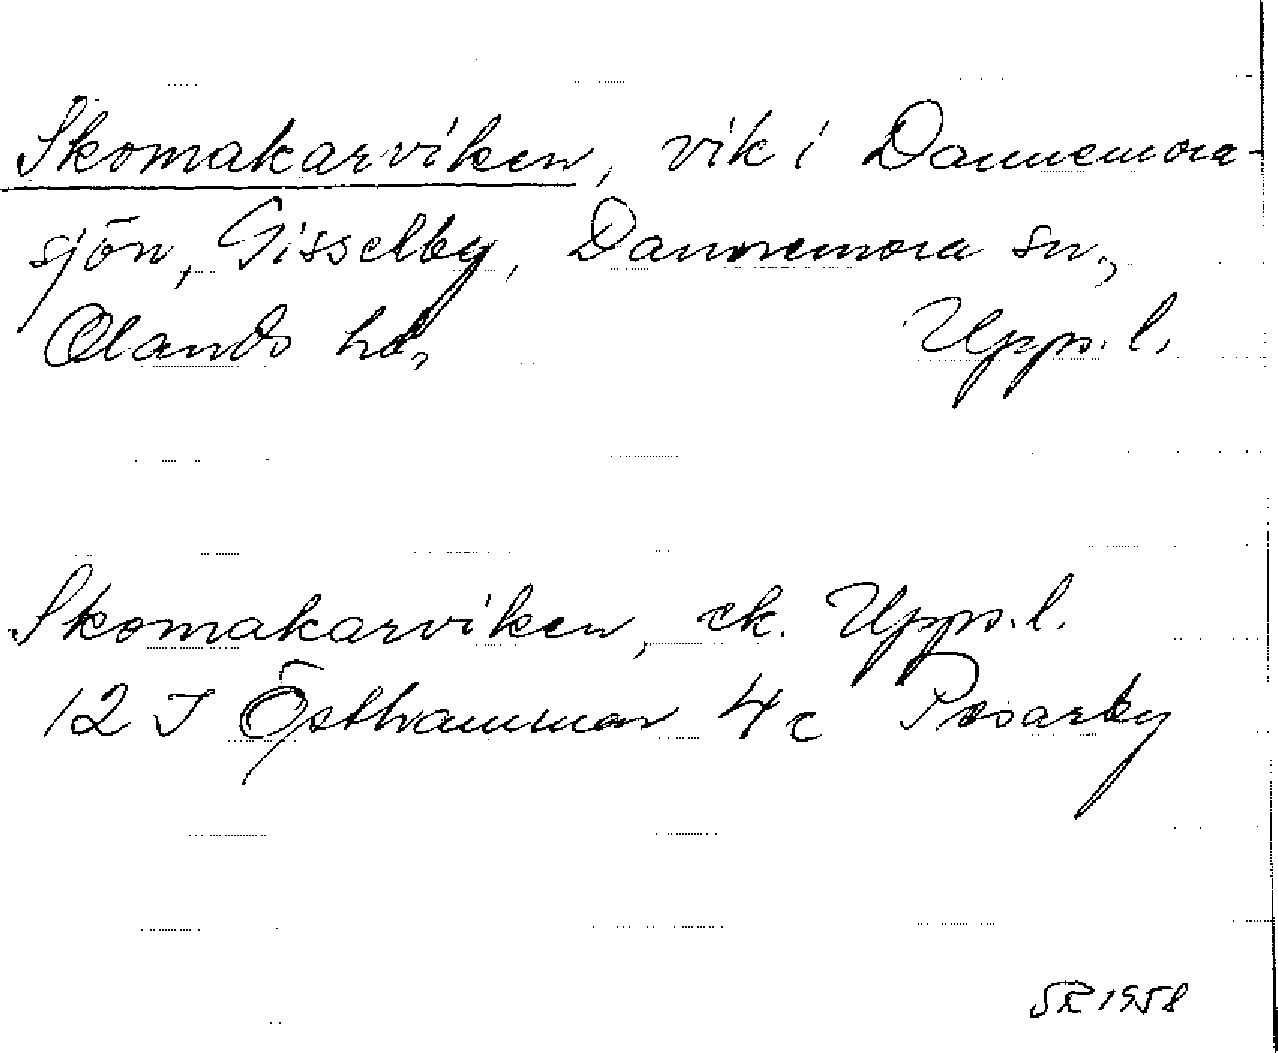 Skomakarviken, vik i Dannemora-
sjön, Gisselby, Dannemora sn.,
Olands hd,
Upps. l.
Skomakarviken, ek. Upps. l.
12 I Östhammar 4c Pesarby
SR 1958